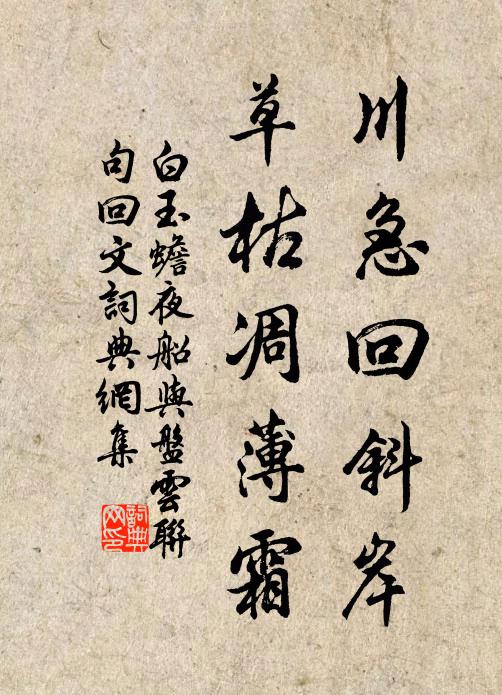 川急回斜岸
草枯凋薄霜
白玉蟾夜船與盤雲聯
句回文詞典網集